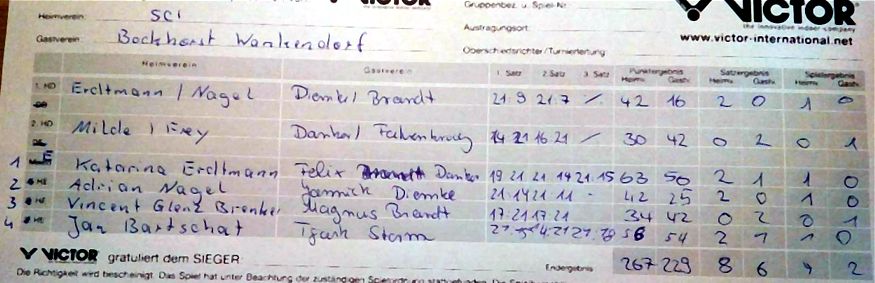 Heimverein: SCI
VICTOR
Gruppenbez. u. Spiel-Nr.
VICTOR
the innovative indoor company
Gastverein: Bockhorst Wankendorf
Austragungsort:
www.victor-international.net
Oberschiedsrichter/Turnierleitung
Heimverein Gastverein 1. Satz 2. Satz 3. Satz Punktergebnis Satzergebnis Spielergebnis
Heimv. Gastv. Heimv. Gastv. Heimv. Gastv.
1. HD Erdtmann / Nagel Diemke/ Brandt 21.9 21.7 / 42 16 2 0 1 0
2. HD Milde / Frey Danker/ 14 21 16 21 / 30 42 0 2 0 1
1 Katarina Erdtmann Felix Danker 19 21 21 14 21.15 63 50 2 1 1 0
2 HE Adrian Nagel Yannick Diemke 21.14 21 11 - 42 25 2 0 1 0
3 HE Vincent Glenz Brenker Magnus Brandt 17.21 17.21 34 42 0 2 0 1
4 HE Jan Bartschat Tjark Storm 56 54 2 1 1 0
VICTOR gratuliert dem SIEGER
Endergebnis 267 229 8 6 4 2
Die Richtigkeit wird bescheinigt. Das Spiel hat unter Beachtung der zuständigen Spielordnung stattgefunden.